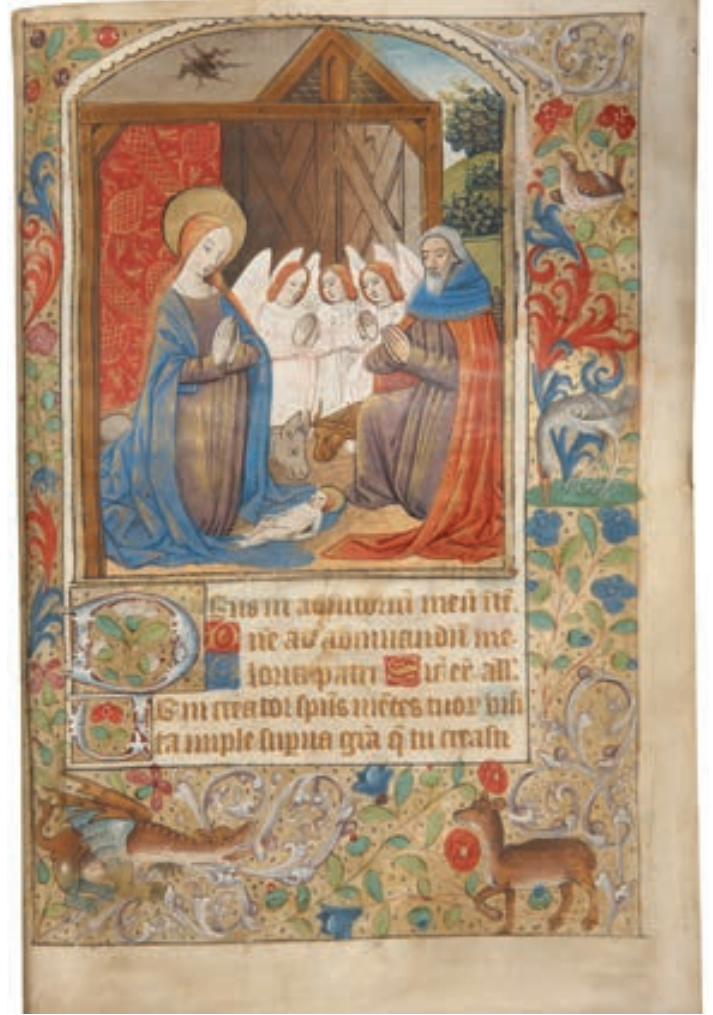 Deus in adiutoriū meū ītē.
Dne ad adiuuandū me
loria patri Sic̄ er̄ all'.
Veni creator spūs mētes tuoꝝ visi
ta imple supna grā q̄ tu creasti